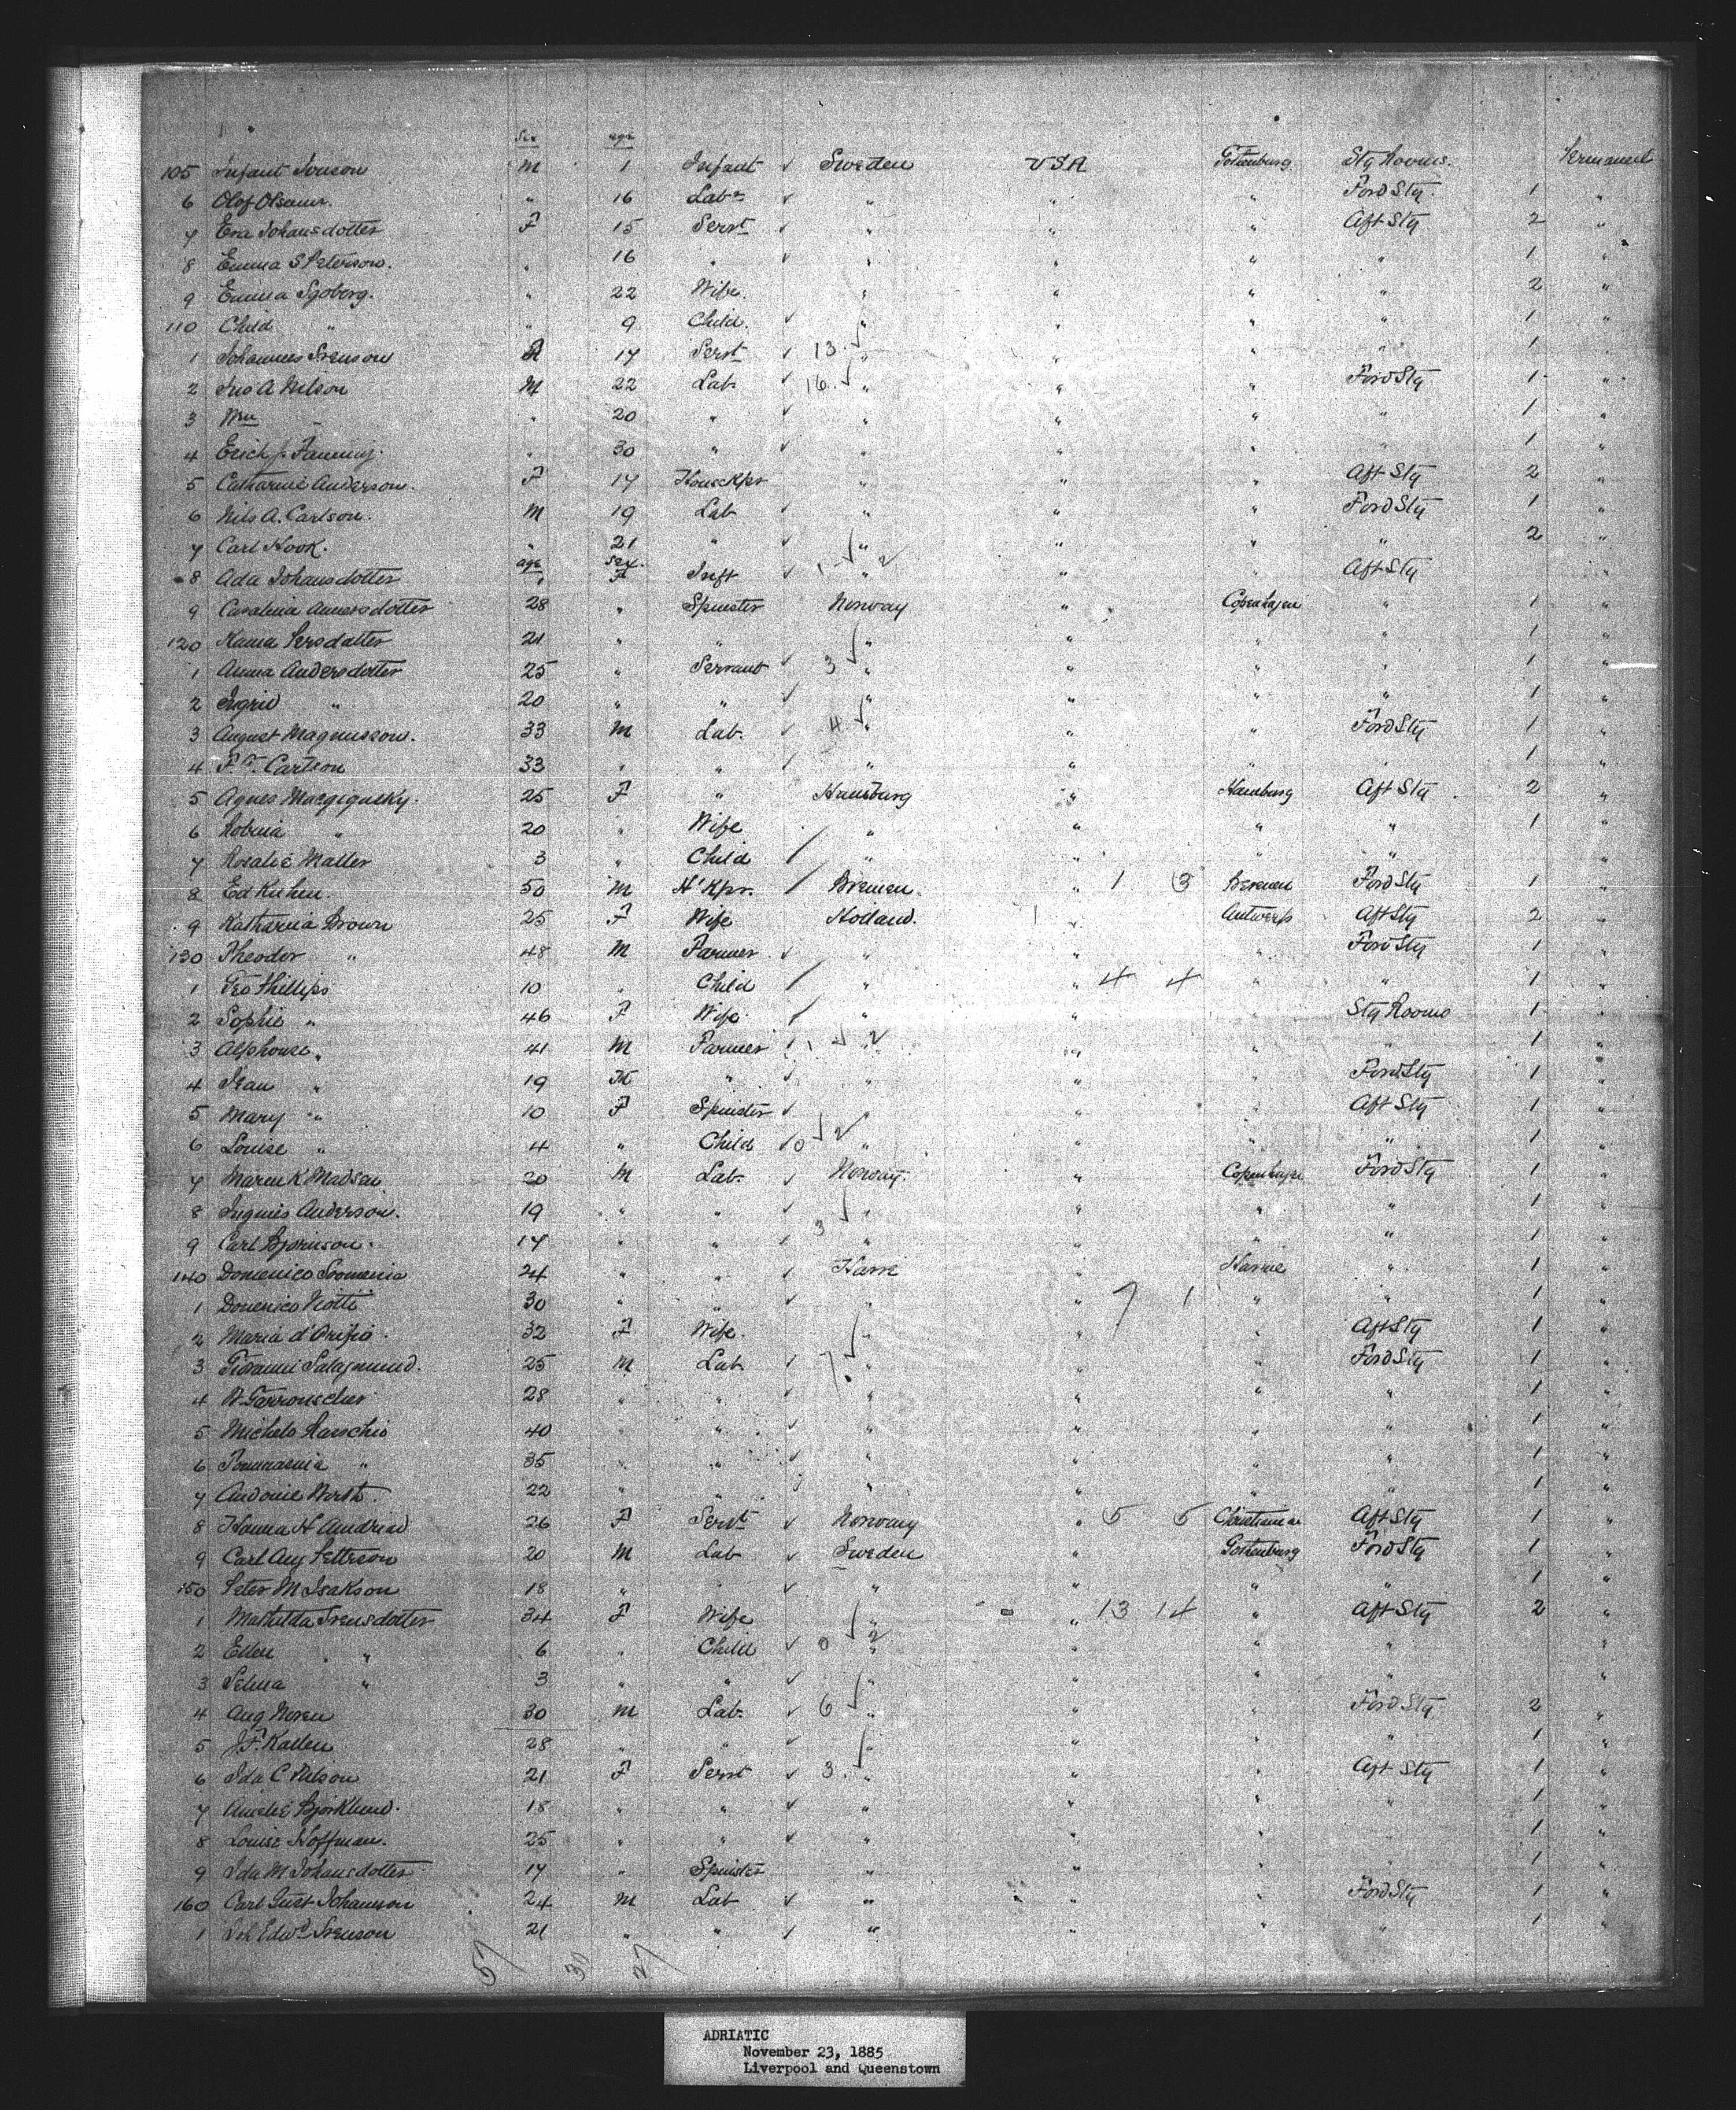 Sex age
105 Infant Jonson M 1 Infant ✓ Sweden USA Gothenburg Stg Rooms. Permanent
6 Olof Olsson. " 16 Labr ✓ " " " Ford Stg. 1 "
7 Eva Johansdotter F 15 Servt ✓ " " " Aft Stg 2 "
8 Emma S Peterson. " 16 " ✓ " " " " 1 "
9 Emma Sjoberg. " 22 Wife. " " " " 2 "
110 Child " " 9 Child. ✓ " " " " 1 "
1 Johannes Svenson 17 Servt ✓ 13 ✓ " " " " 1 "
2 Jno A Nilson M 22 Lab. ✓ 16 ✓ " " " Ford Stg 1 "
3 Wm " " 20 " ✓ " " " " 1 "
4 Erich Fanning. " 30 " ✓ " " " " 1 "
5 Catharine Anderson. F 17 Housekpr " " " Aft Stg 2 "
6 Nils A. Carlson. M 19 Lab ✓ " " " Ford Stg 1 "
7 Carl Hook. " 21 " ✓ " " " " 2 "
age Sex.
8 Ada Johansdotter " F Inft ✓ 1 ✓ 2 " " " Aft Stg "
9 Carolina Annersdotter 28 " Spinster Norway " Copenhagen " 1 "
120 Hanna Persdatter 21 " " ✓ " " " " 1 "
1 Anna Andersdotter 25 " Servant ✓ 3 " " " " 1 "
2 Ingrid " 20 " " ✓ " " " " 1 "
3 August Magnusson. 33 M Lab. ✓ 4 ✓ " " " Ford Stg 1 "
4 F. T. Carlson 33 " " ✓ " " " " 1 "
5 Agnes 25 F " Hamburg " Hamburg Aft Stg 2 "
6 20 " Wife " " " " 1 "
7 Rosalie Matter 3 " Child / " " " "
8 Ed Kuhen. 50 M H'Kpr. / Bremen. " 1 3 Bremen Ford Stg 1 "
9 Katharina Brown 25 F Wife Holland. 1 " Antwerp Aft Stg 2 "
130 Theodor " 48 M Farmer ✓ " " " Ford Stg 1 "
1 Geo Phillips 10 " Child / " " 4 4 " " 1 "
2 Sophie " 46 F Wife / " " Stg Rooms 1 "
3 Alphonse " 41 M Farmer 1 ✓ 2 " " " " 1 "
4 Jean " 19 M " ✓ " " Ford Stg 1 "
5 Mary " 10 F Spinster ✓ " " Aft Stg 1 "
6 Louise " 4 " Child ✓ 0 ✓ 2 " " " " 1 "
7 Maren K Madsen 20 M Lab. ✓ Norway. " Copenhagen Ford Stg 1 "
8 Anderson. 19 " " ✓ 3 ✓ " " " " 1 "
9 Carl Bjornson. 17 " " ✓ " " " " 1 "
140 Domenico 24 " " ✓ Havre " Havre " 1 "
1 Domenico 30 " " ✓ " " 7 1 " " 1 "
2 Maria d'Orifio. 32 F Wife. " " " Aft Stg 1 "
3 Giovanni 25 M Lab 7 ✓ " " " Ford Stg 1 "
4 28 " " ✓ " " " 1 "
5 Michele 40 " " ✓ " " " 1 "
6 " 35 " " ✓ " " " " 1 "
7 22 " " " " " " 1 "
8 Hanna H 26 F Servt ✓ Norway " 5 5 Christiania Aft Stg 1 "
9 Carl Aug Petterson 20 M Lab ✓ Sweden " Gothenburg Ford Stg 1 "
150 Peter M Isakson 18 " " ✓ " " " 1 "
1 Mathilda Svensdotter 34 F Wife ✓ " " 13 14 " Aft Stg 2 "
2 Ellen " 6 " Child ✓ 0 2 " " " " "
3 Selma " 3 " " ✓ " " " " "
4 Aug Noren 30 M Lab. ✓ 6 ✓ " " " Ford Stg 2 "
5 J. F. Kallen 28 " " ✓ " " " " 1 "
6 Ida C Nelson 21 F Servt ✓ 3 ✓ " " " Aft Stg 1 "
7 Amelie Bjorklund. 18 " " ✓ " " " " 1 "
8 Louise Hoffman. 25 " " ✓ " " " " 1 "
9 Ida M Johansdotter 17 " Spinster " " " " 1 "
160 Carl Gust Johanson 24 M Lab ✓ " " " Ford Stg 1 "
1 Joh Edwd Svenson 21 " " ✓ " " " " 1 "
57 27
ADRIATIC
November 23, 1885
Liverpool and Queenstown